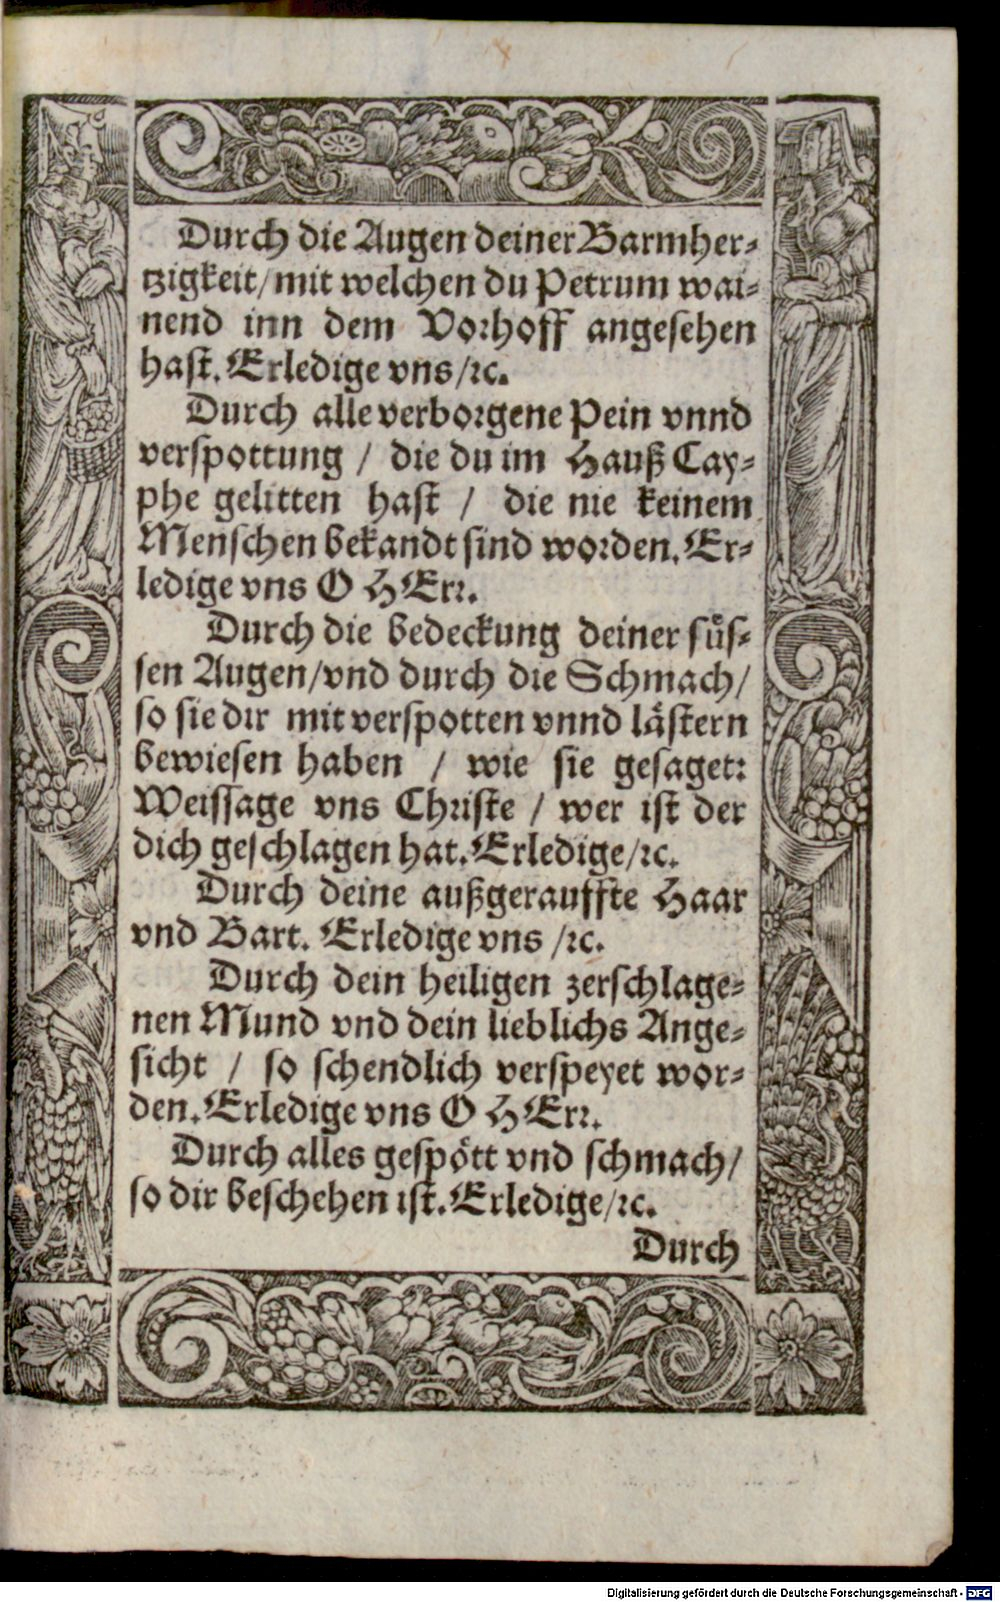 Durch die Augen deiner Barmher⸗
tzigkeit/ mit welchen du Petrum wai⸗
nend inn dem Vorhoff angesehen
hast. Erledige vns/ꝛc.
Durch alle verborgene Pein vnnd
verspottung / die du im Hauß Cay⸗
phe gelitten hast / die nie keinem
Menschen bekandt sind worden. Er⸗
ledige vns O HErr.
Durch die bedeckung deiner süs⸗
sen Augen/vnd durch die Schmach/
so sie dir mit verspotten vnnd lästern
bewiesen haben / wie sie gesaget:
Weissage vns Christe / wer ist der
dich geschlagen hat. Erledige/ꝛc.
Durch deine außgerauffte Haar
vnd Bart. Erledige vns /ꝛc.
Durch dein heiligen zerschlage⸗
nen Mund vnd dein lieblichs Ange⸗
sicht / so schendlich verspeyet wor⸗
den. Erledige vns O HErr.
Durch alles gespött vnd schmach/
so dir beschehen ist. Erledige/ꝛc.
Durch
Digitalisierung gefördert durch die Deutsche Forschungsgemeinschaft - DFG